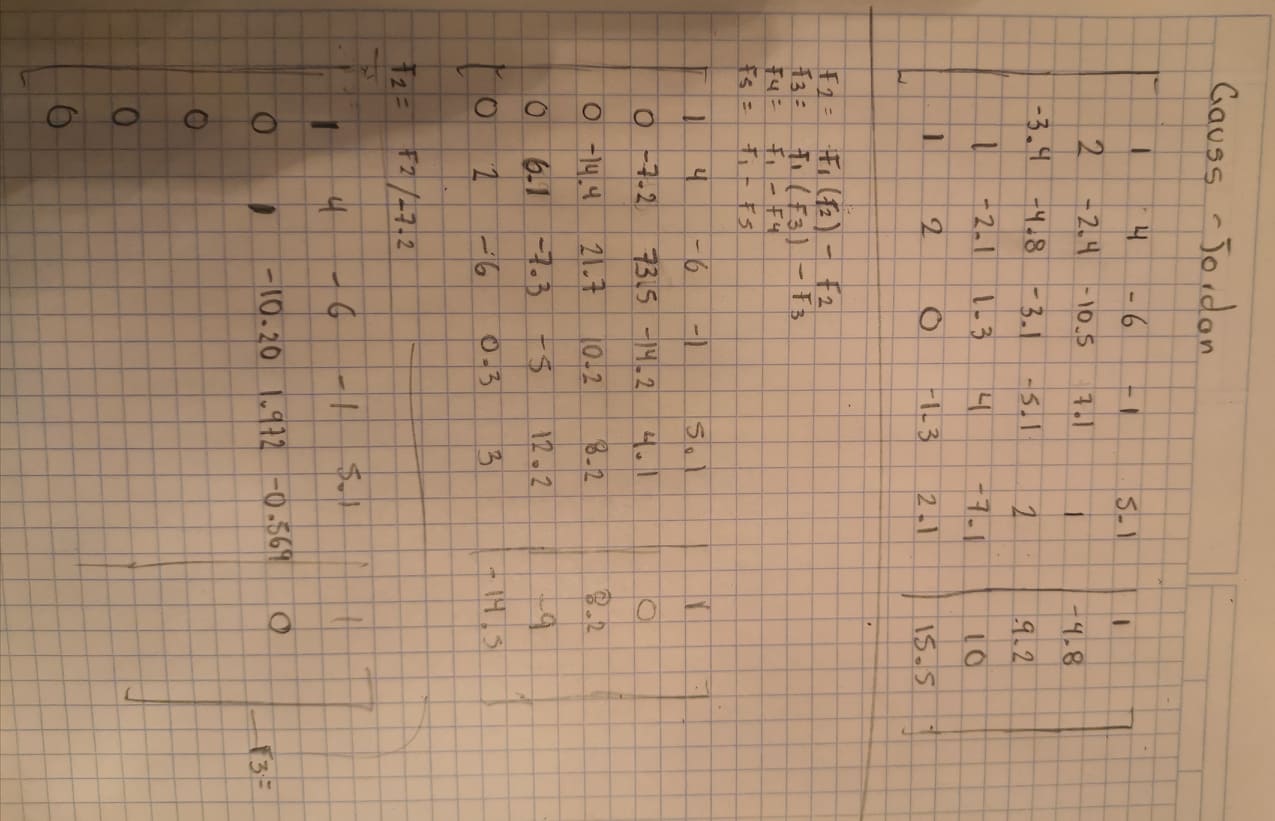 Gauss - Jordan
1 4 -6 -1 5.1 1
2 -2.4 -10.5 7.1 1 -4.8
-3.4 -4.8 -3.1 -5.1 2 9.2
1 -2.1 1.3 4 -7.1 10
1 2 0 -1.3 2.1 15.5
F2= F1(F2) - F2
F3= F1(F3) - F3
F4= F1 - F4
F5= F1 - F5
1 4 -6 -1 5.1 1
0 -7.2 -14.2 4.1 0
0 -14.4 21.7 10.2 8.2 8.2
0 6.1 -7.3 -5 12.2 -9
0 2 -6 0.3 3 -14.5
F2= F2/-7.2
1 4 -6 -1 5.1 1
0 1 -10.20 1.972 -0.569 0
F3=
0
0
0